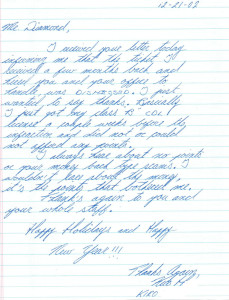 12-21-92
Mr. Diamond,
I received your letter today
informing me that the ticket I
received a few months back and
hired you and your office to
handle, was DISMISSED. I just
wanted to say thanks. Basically
I just got my class "B" CDL
license a couple weeks before the
infraction and did not or could
not afford any points.
I always hear about no points
or your money back type scams. I
wouldn't care about the money,
it's the points that bothered me.
Thanks again to you and
your whole staff.
Happy Holidays and Happy
New Year!!!
Thanks Again,
Rob H